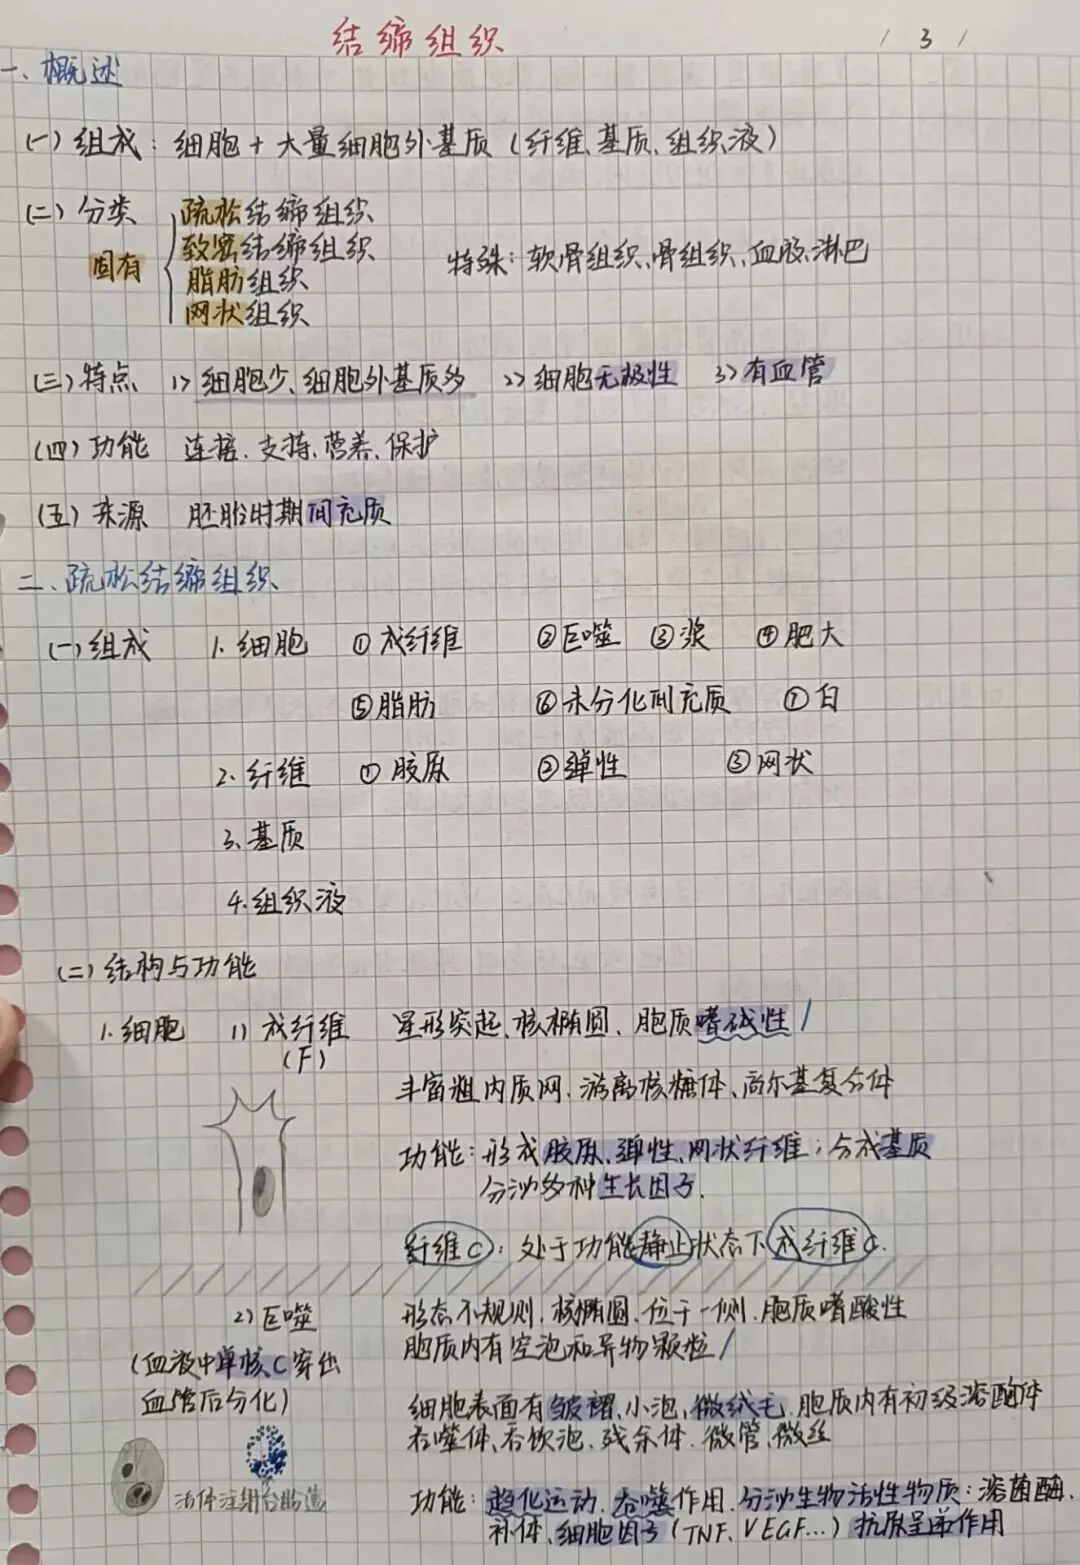 结缔组织
/ 3 /
一、概述
(一) 组成：细胞 + 大量细胞外基质 (纤维、基质、组织液)
(二) 分类
固有
疏松结缔组织
致密结缔组织
脂肪组织
网状组织
特殊：软骨组织、骨组织、血液、淋巴
(三) 特点 1> 细胞少、细胞外基质多 2> 细胞无极性 3> 有血管
(四) 功能 连接、支持、营养、保护
(五) 来源 胚胎时期间充质
二、疏松结缔组织
(一) 组成 1. 细胞 ① 成纤维 ② 巨噬 ③ 浆 ④ 肥大
⑤ 脂肪 ⑥ 未分化间充质 ⑦ 白
2. 纤维 ① 胶原 ② 弹性 ③ 网状
3. 基质
4. 组织液
(二) 结构与功能
1. 细胞 1) 成纤维 星形突起、核椭圆、胞质嗜碱性 /
(F)
丰富粗内质网、游离核糖体、高尔基复合体
功能：形成胶原、弹性、网状纤维；分成基质
分泌多种生长因子.
纤维C：处于功能静止状态下成纤维C.
2) 巨噬 形态不规则、核椭圆、位于一侧、胞质嗜酸性
胞质内有空泡和异物颗粒 /
(血液中单核C穿出
血管后分化)
细胞表面有皱褶、小泡、微绒毛、胞质内有初级溶酶体
吞噬体、吞饮泡、残余体、微管、微丝
活体注射台盼蓝
功能：趋化运动、吞噬作用、分泌生物活性物质：溶菌酶、
补体、细胞因子 (TNF、VEGF...) 抗原呈递作用